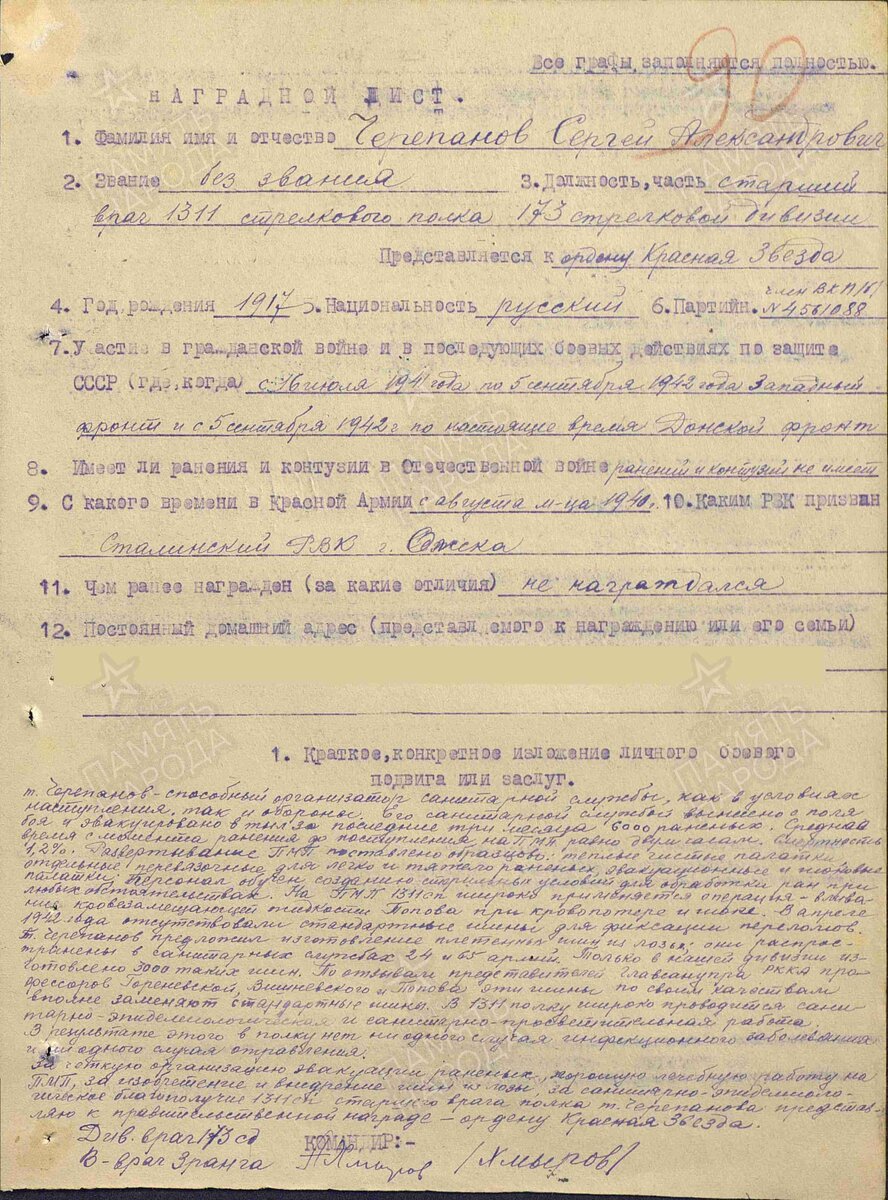 Все графы заполняются полностью.
90
НАГРАДНОЙ ЛИСТ.
1. Фамилия имя и отчество Черепанов Сергей Александрович
2. Звание без звания 3. Должность, часть старший
врач 1311 стрелкового полка 173 стрелковой дивизии
Представляется к ордену Красная Звезда
член ВКП(б)
4. Год рождения 1917 5. Национальность русский 6. Партийн. № 4561088
7. Участие в гражданской войне и в последующих боевых действиях по защите
СССР (где, когда) с 16 июля 1941 года по 5 сентября 1942 года Западный
фронт и с 5 сентября 1942 г по настоящие время Донской фронт
8. Имеет ли ранения и контузии в Отечественной войне ранений и контузий не имеет
9. С какого времени в Красной Армии с августа м-ца 1940г. 10. Каким РВК призван
Сталинский РВК г. Омска
11. Чем ранее награжден (за какие отличия) не награждался
12. Постоянный домашний адрес (представляемого к награждению или его семьи)
1. Краткое, конкретное изложение личного боевого
подвига или заслуг.
т. Черепанов - способный организатор санитарной службы, как в условиях
наступления, так и обороны. Его санитарной службой вынесено с поля
боя и эвакуировано в тыл за последние три месяца 6000 раненых. Среднее
время с момента ранения до поступления на ПМП равно двум часам. Смертность
1,2%. Развертывание ПМП поставлено образцово: теплые чистые палатки
отдельные перевязочные для легко и тяжело раненых, эвакуационные и шоковые
палатки. Персонал обучен созданию стерильных условий для обработки ран при
любых обстоятельствах. На ПМП 1311 сп широко применяется операция - влива-
ние кровезамещающей жидкости Попова при кровопотере и шоке. В апреле
1942 года отсутствовали стандартные шины для фиксации переломов.
Т. Черепанов предложил изготовление плетенных шин из лозы; они распрос-
транены в санитарных службах 24 и 65 армий. Только в нашей дивизии из-
готовлено 3000 таких шин. По отзывам представителей Главсанупра РККА про-
фессоров Гореневской, Вишневского и Попова эти шины по своим качествам
вполне заменяют стандартные шины. В 1311 полку широко проводится сани-
тарно-эпидемиологическая и санитарно-просветительная работа.
В результате этого в полку нет ни одного случая инфекционного заболевания
и ни одного случая отравления.
За четкую организацию эвакуации раненых, хорошую лечебную работу на
ПМП, за изобретение и внедрение шин из лозы, за санитарно-эпидемиоло-
гическое благополучие 1311 сп старшего врача полка т. Черепанова представ-
ляю к правительственной награде - ордену Красная Звезда.
Див. врач 173 сд КОМАНДИР:-
В-врач 3 ранга Хмыров /Хмыров/
ПАМЯТЬ НАРОДА